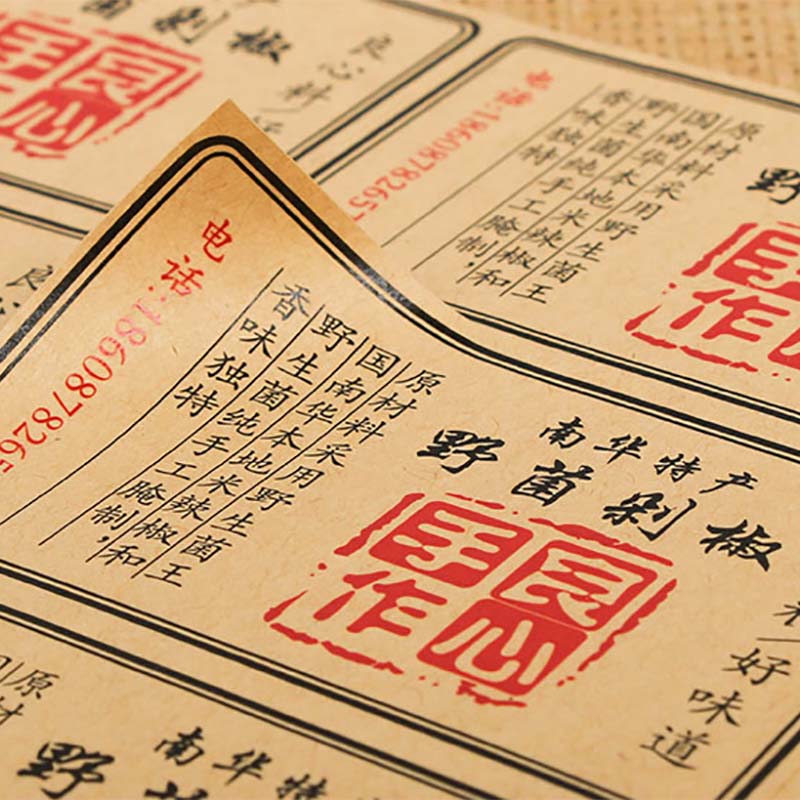 特产
剁椒
良心料/
良心
手作
野
原材料采用野生菌王
国南华本地米辣椒和
野生菌纯手工腌制,
香味独特
电话:1860878265
良心料
南华特产
野菌剁椒
良心
手作
好味道
原材料采用野生菌王
国南华本地米辣椒和
野生菌纯手工腌制,
香味独特
电话:1860878265
南华特
野菌
原材
国